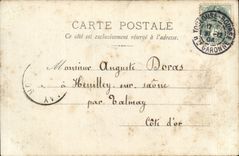 CARTE POSTALE
Ce côté est exclusivement réservé à l'adresse.
TOULOUSE
GARONNE
Monsieur Auguste Boras
à Heuilley sur saône
par Talmay
Côte d'or